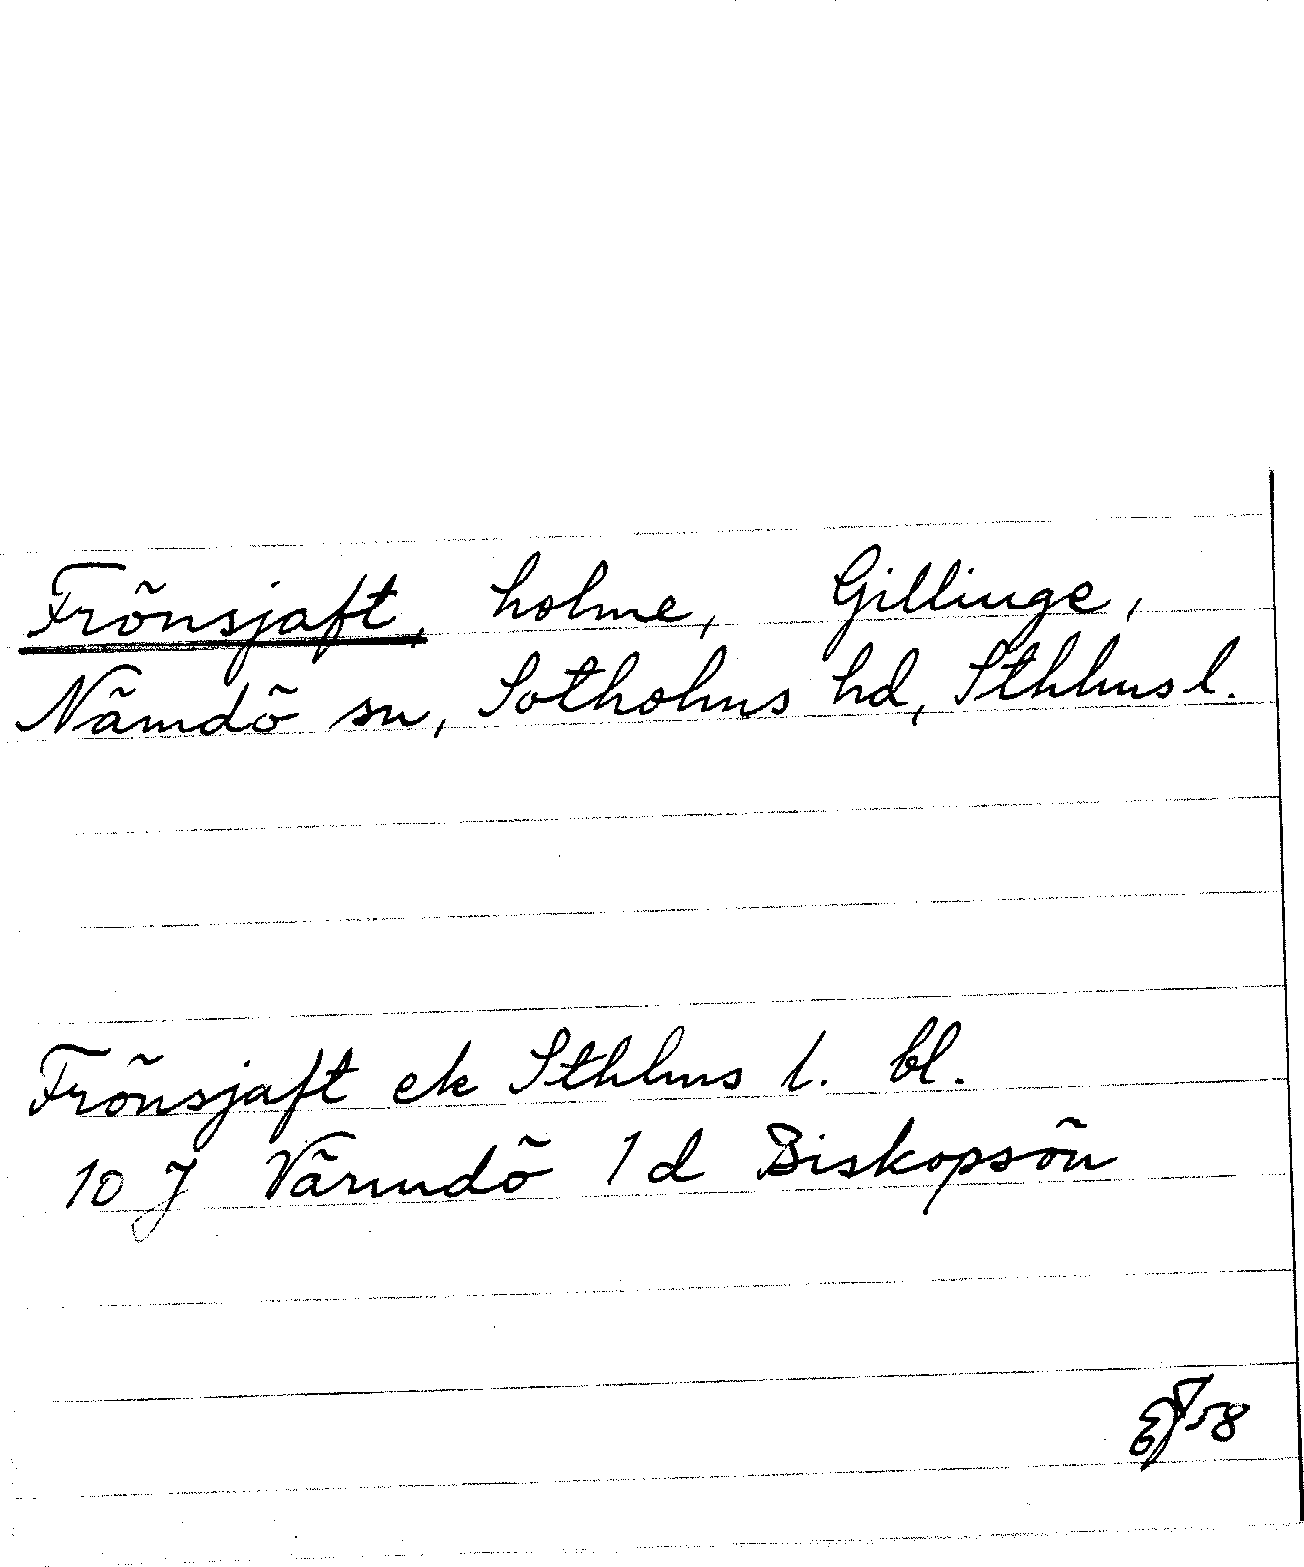 Frönsjaft, holme, Gillinge,
Nämdö sn, Sotholms hd, Sthlms l.
Frönsjaft ek Sthlms l. bl.
10 J Värmdö 1 d Biskopsön
58